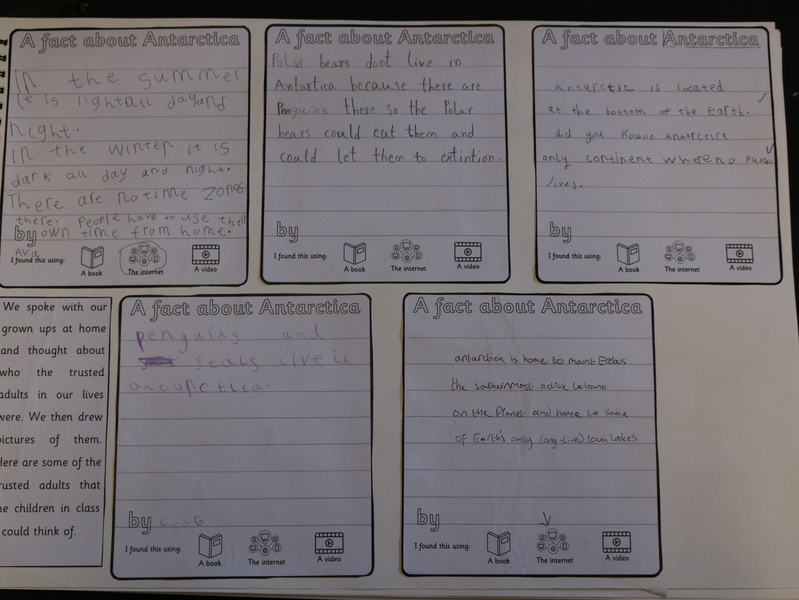 A fact about Antarctica
in the summer
it is light all day and
night.
in the winter it is
dark all day and night.
There are no time zones
there. People have to use their
by own time from home.
Ava
I found this using:
A book
The internet
A video
A fact about Antarctica
Polar bears dont live in
Antartica because there are
Penguins there so the Polar
bears could eat them and
could let them to extintion.
by
I found this using:
A book
The internet
A video
A fact about Antarctica
Antarctic is located
at the bottom of the Earth.
did you Antarctice
only continent where no
lives.
by
I found this using:
A book
The internet
A video
We spoke with our
grown ups at home
and thought about
who the trusted
adults in our lives
were. We then drew
pictures of them.
Here are some of the
trusted adults that
the children in class
could think of.
A fact about Antarctica
penguins and
seals live in
antarctica.
by
I found this using:
A book
The internet
A video
A fact about Antarctica
antarctica is home to mount Erebus
the southernmost active
on the Planet and home to some
of Earth's only long-lived Lakes
by
I found this using:
A book
The internet
A video